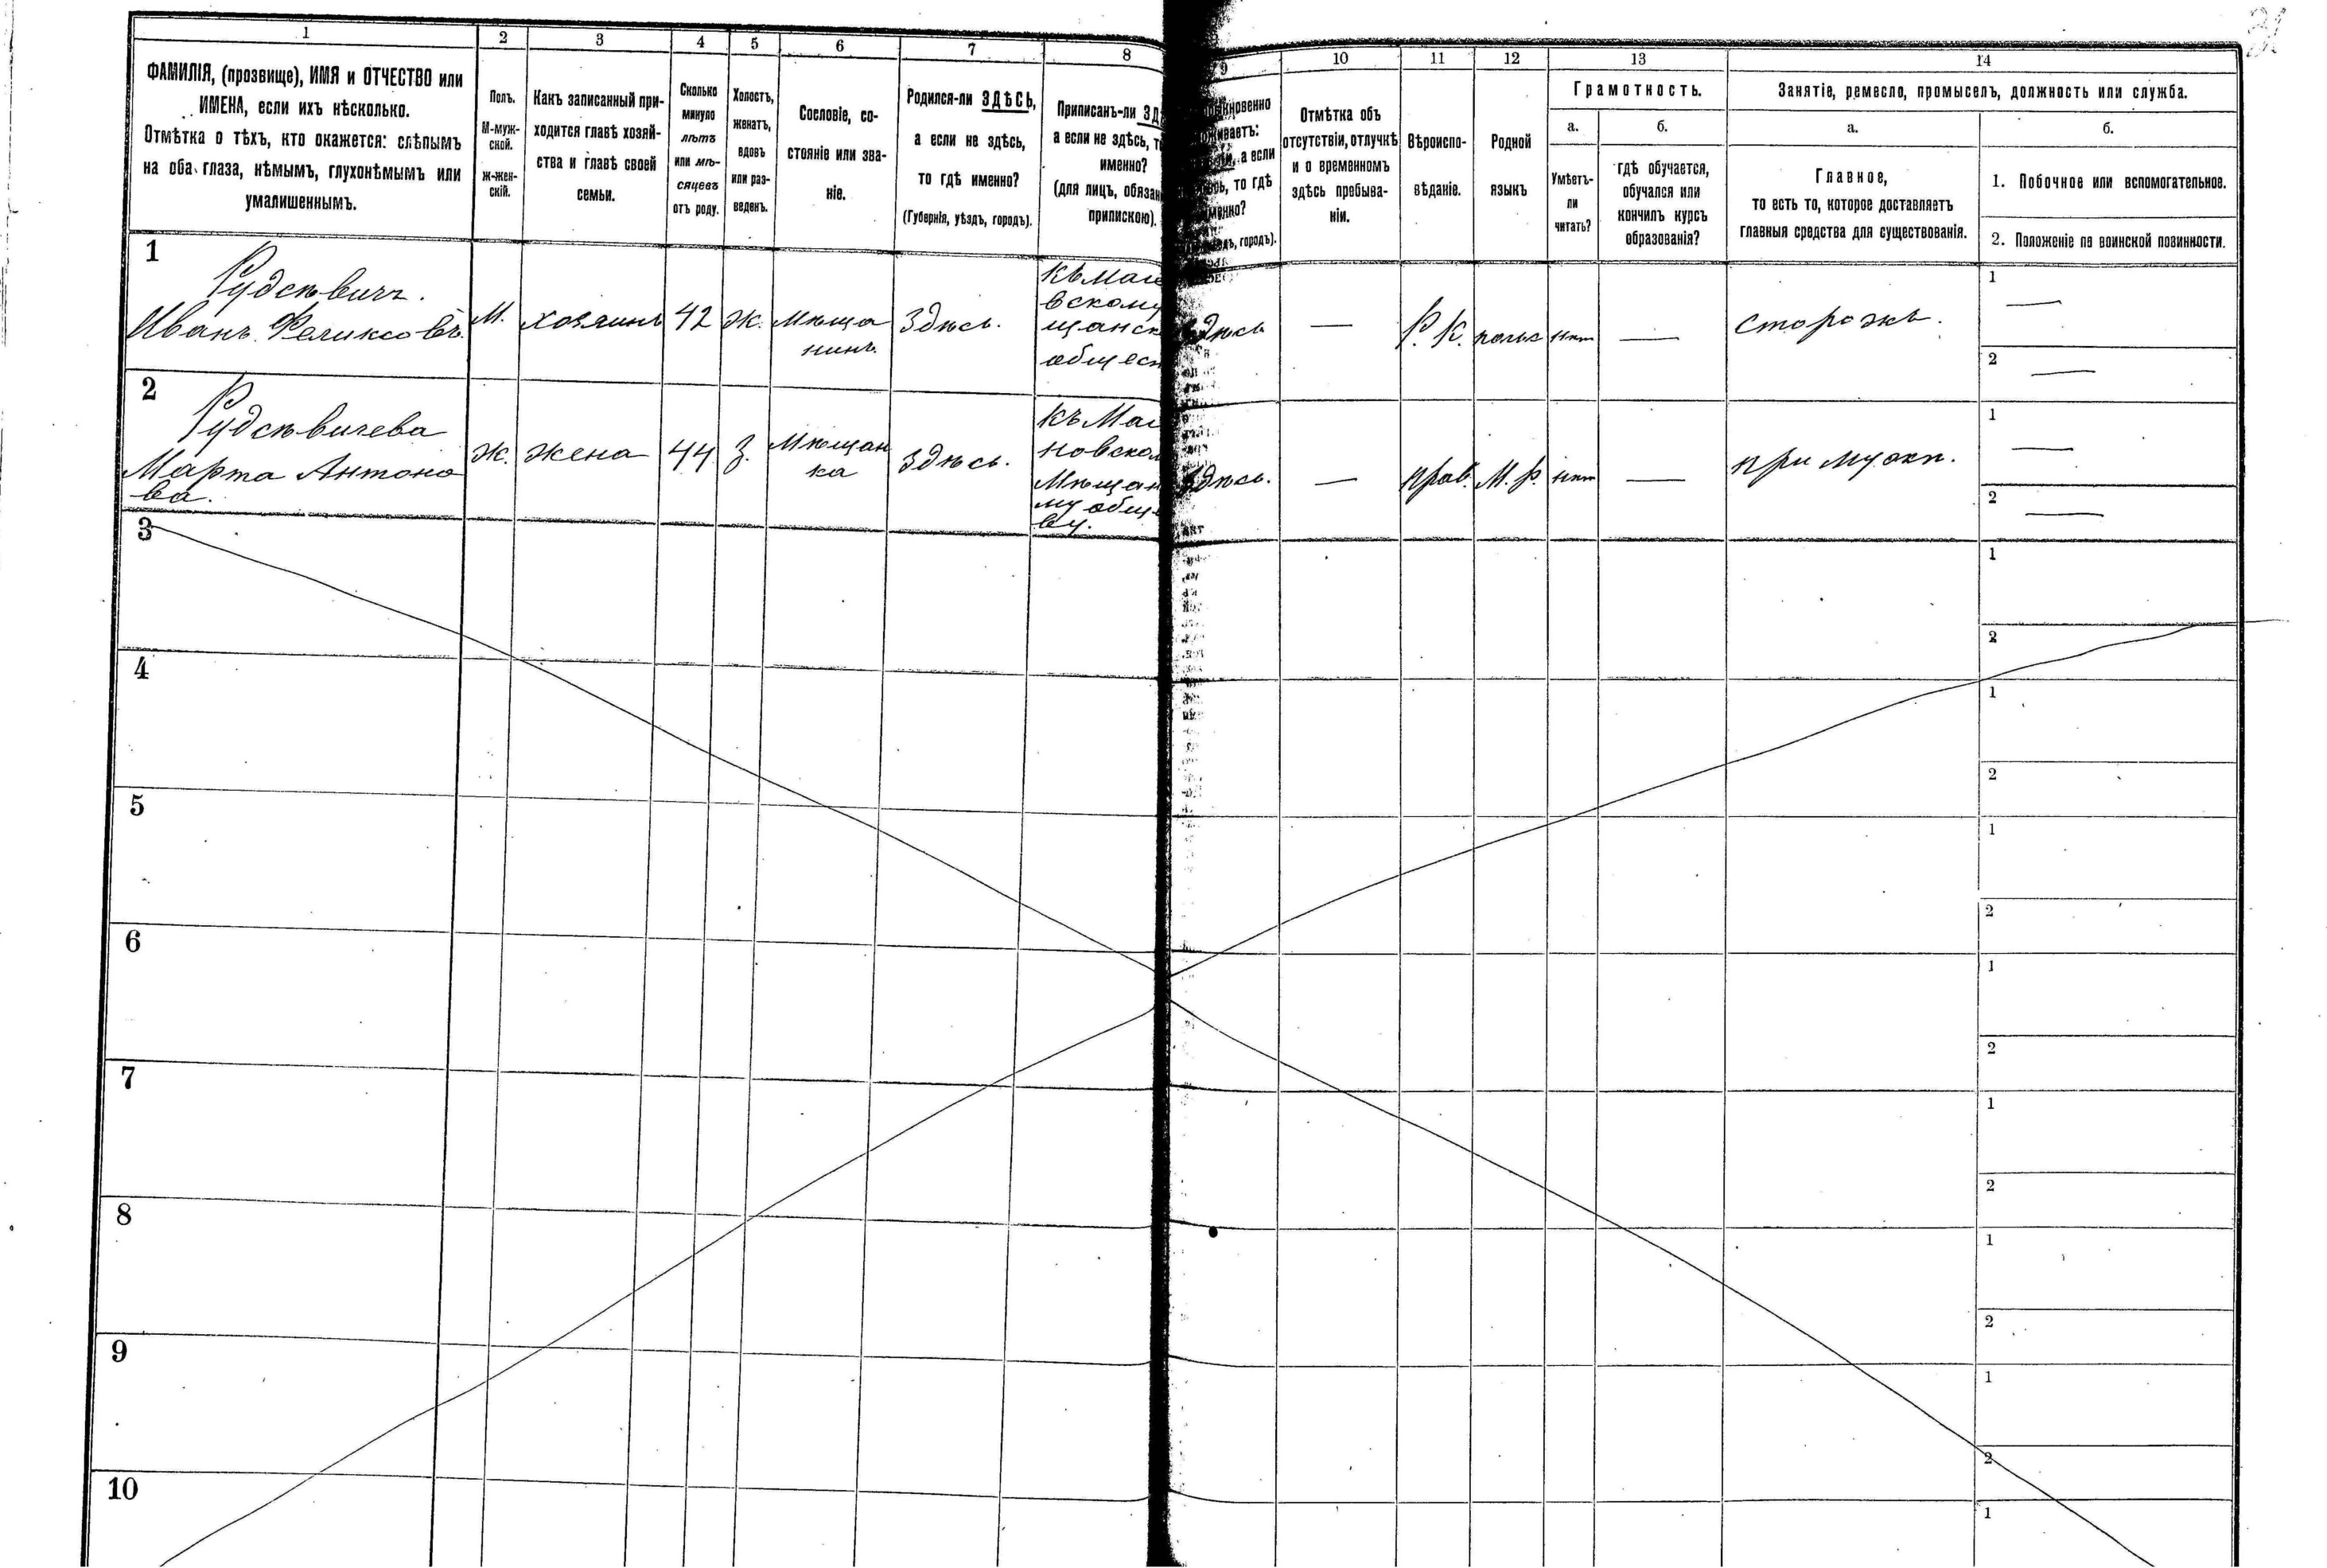 31
1 2 3 4 5 6 7 8
ФАМИЛІЯ, (прозвище), ИМЯ и ОТЧЕСТВО или
ИМЕНА, если ихъ нѣсколько.
Отмѣтка о тѣхъ, кто окажется: слѣпымъ
на оба глаза, нѣмымъ, глухонѣмымъ или
умалишеннымъ.
Полъ.
М-муж-
ской.
Ж-жен-
скій.
Какъ записанный при-
ходится главѣ хозяй-
ства и главѣ своей
семьи.
Сколько
минуло
лѣтъ
или мѣ-
сяцевъ
отъ роду.
Холостъ,
женатъ,
вдовъ
или раз-
веденъ.
Сословіе, со-
стояніе или зва-
ніе.
Родился-ли ЗДѢСЬ,
а если не здѣсь,
то гдѣ именно?
(Губернія, уѣздъ, городъ).
Приписанъ-ли ЗД
а если не здѣсь, т
именно?
(для лицъ, обязан
припискою).
9 10 11 12 13 14
новенно
живаетъ:
, а если
, то гдѣ
менно?
, городъ).
Отмѣтка объ
отсутствіи, отлучкѣ
и о временномъ
здѣсь пребыва-
ніи.
Вѣроиспо-
вѣданіе.
Родной
языкъ
Грамотность.
а.
Умѣетъ-
ли
читать?
б.
гдѣ обучается,
обучался или
кончилъ курсъ
образованія?
Занятіе, ремесло, промыселъ, должность или служба.
а.
Главное,
то есть то, которое доставляетъ
главныя средства для существованія.
б.
1. Побочное или вспомогательное.
2. Положеніе по воинской повинности.
1
Рудсѣвичъ.
Иванъ Феликсовъ.
М.
хозяинъ
42
Ж.
мѣща
нинъ.
Здѣсь.
къ Маг
вскому
щанск
общест
здѣсь
—
Р. К.
польс
нѣт
—
сторожъ.
1
—
2
—
2
Рудсѣвичева
Марта Антоно
ва.
Ж.
жена
44
З.
Мѣщан
ка
Здѣсь.
къ Маг
новском
Мѣщан
му общ
ву.
здѣсь.
—
прав.
М. Р.
нѣт
—
при мужѣ.
1
—
2
—
3
1
2
4
1
2
5
1
2
6
1
2
7
1
2
8
1
2
9
1
2
10
1